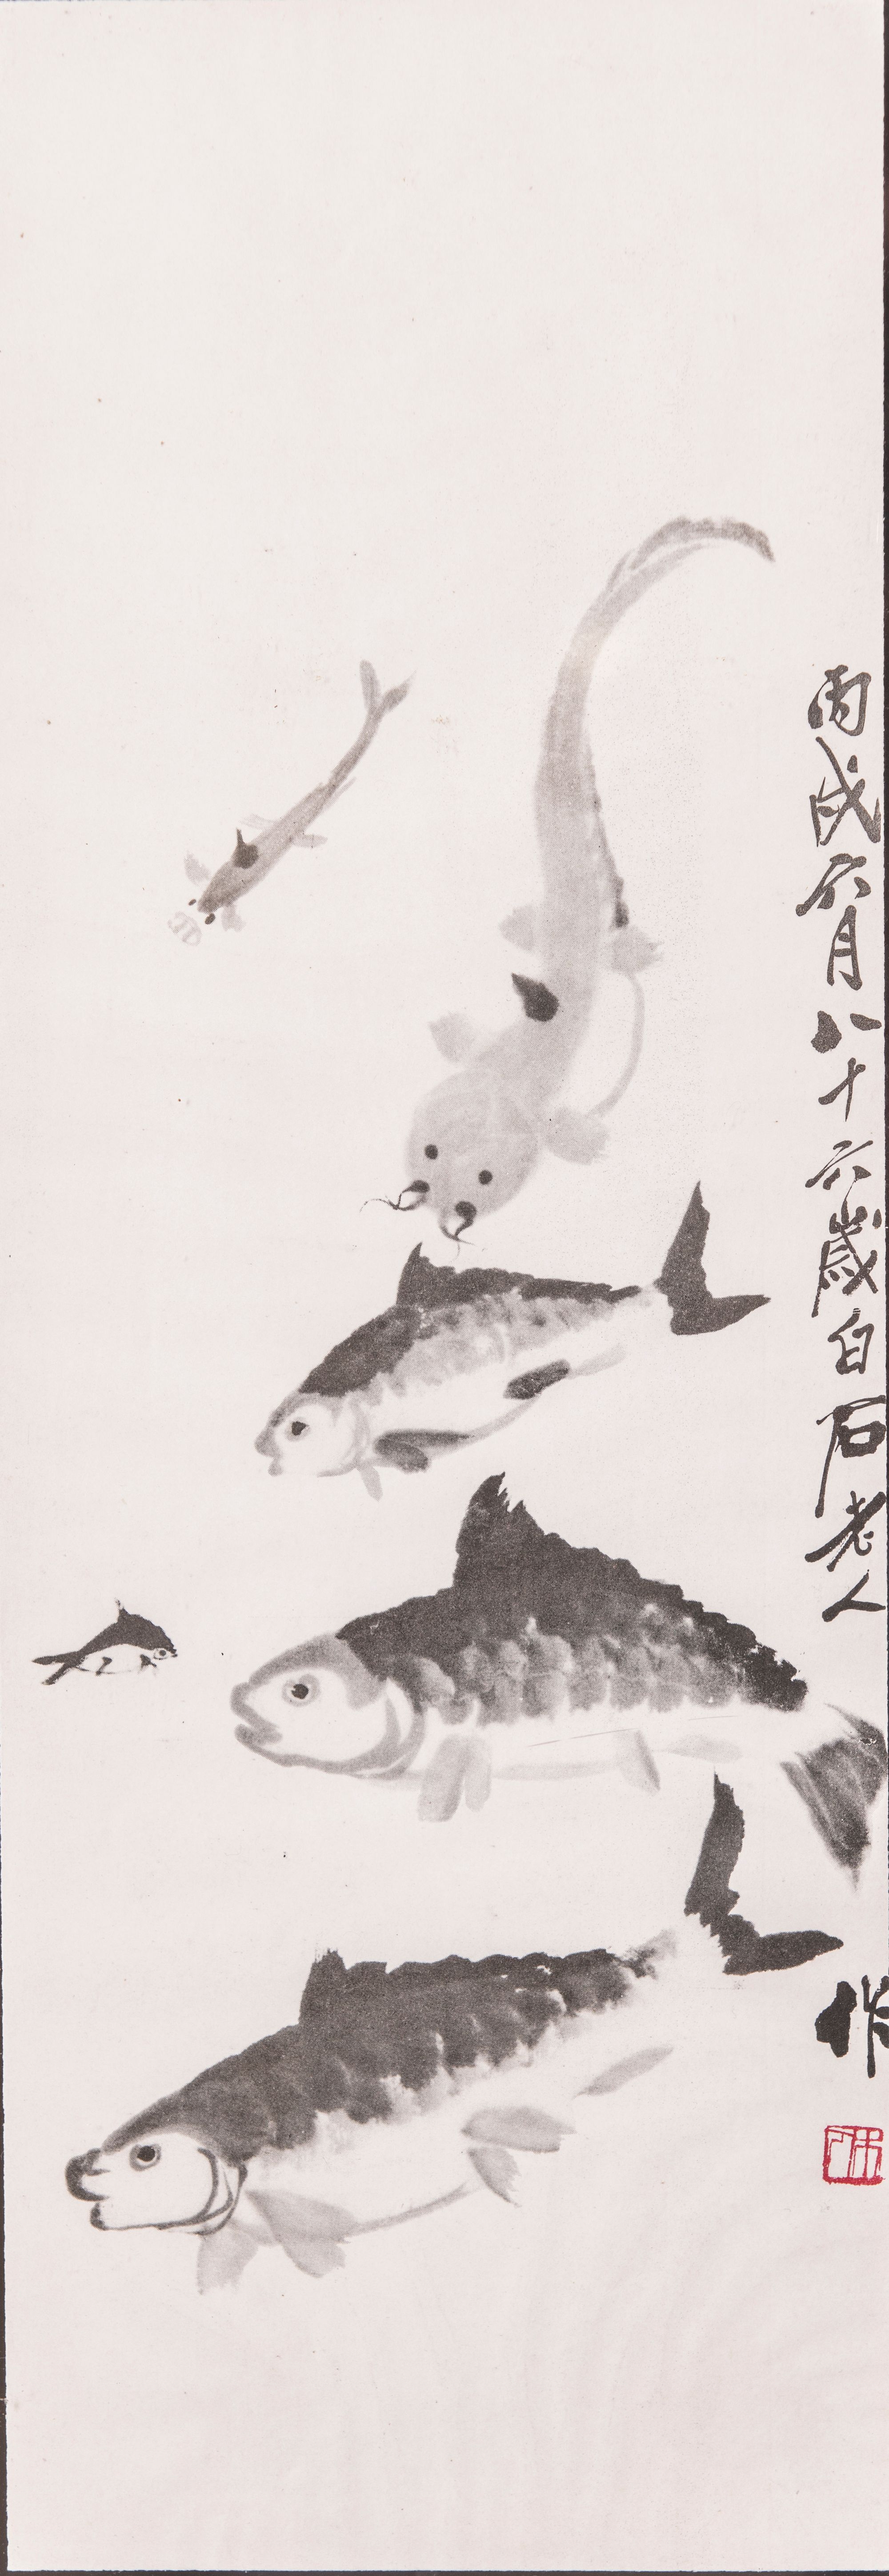 丙戌六月八十六歲白石老人
作